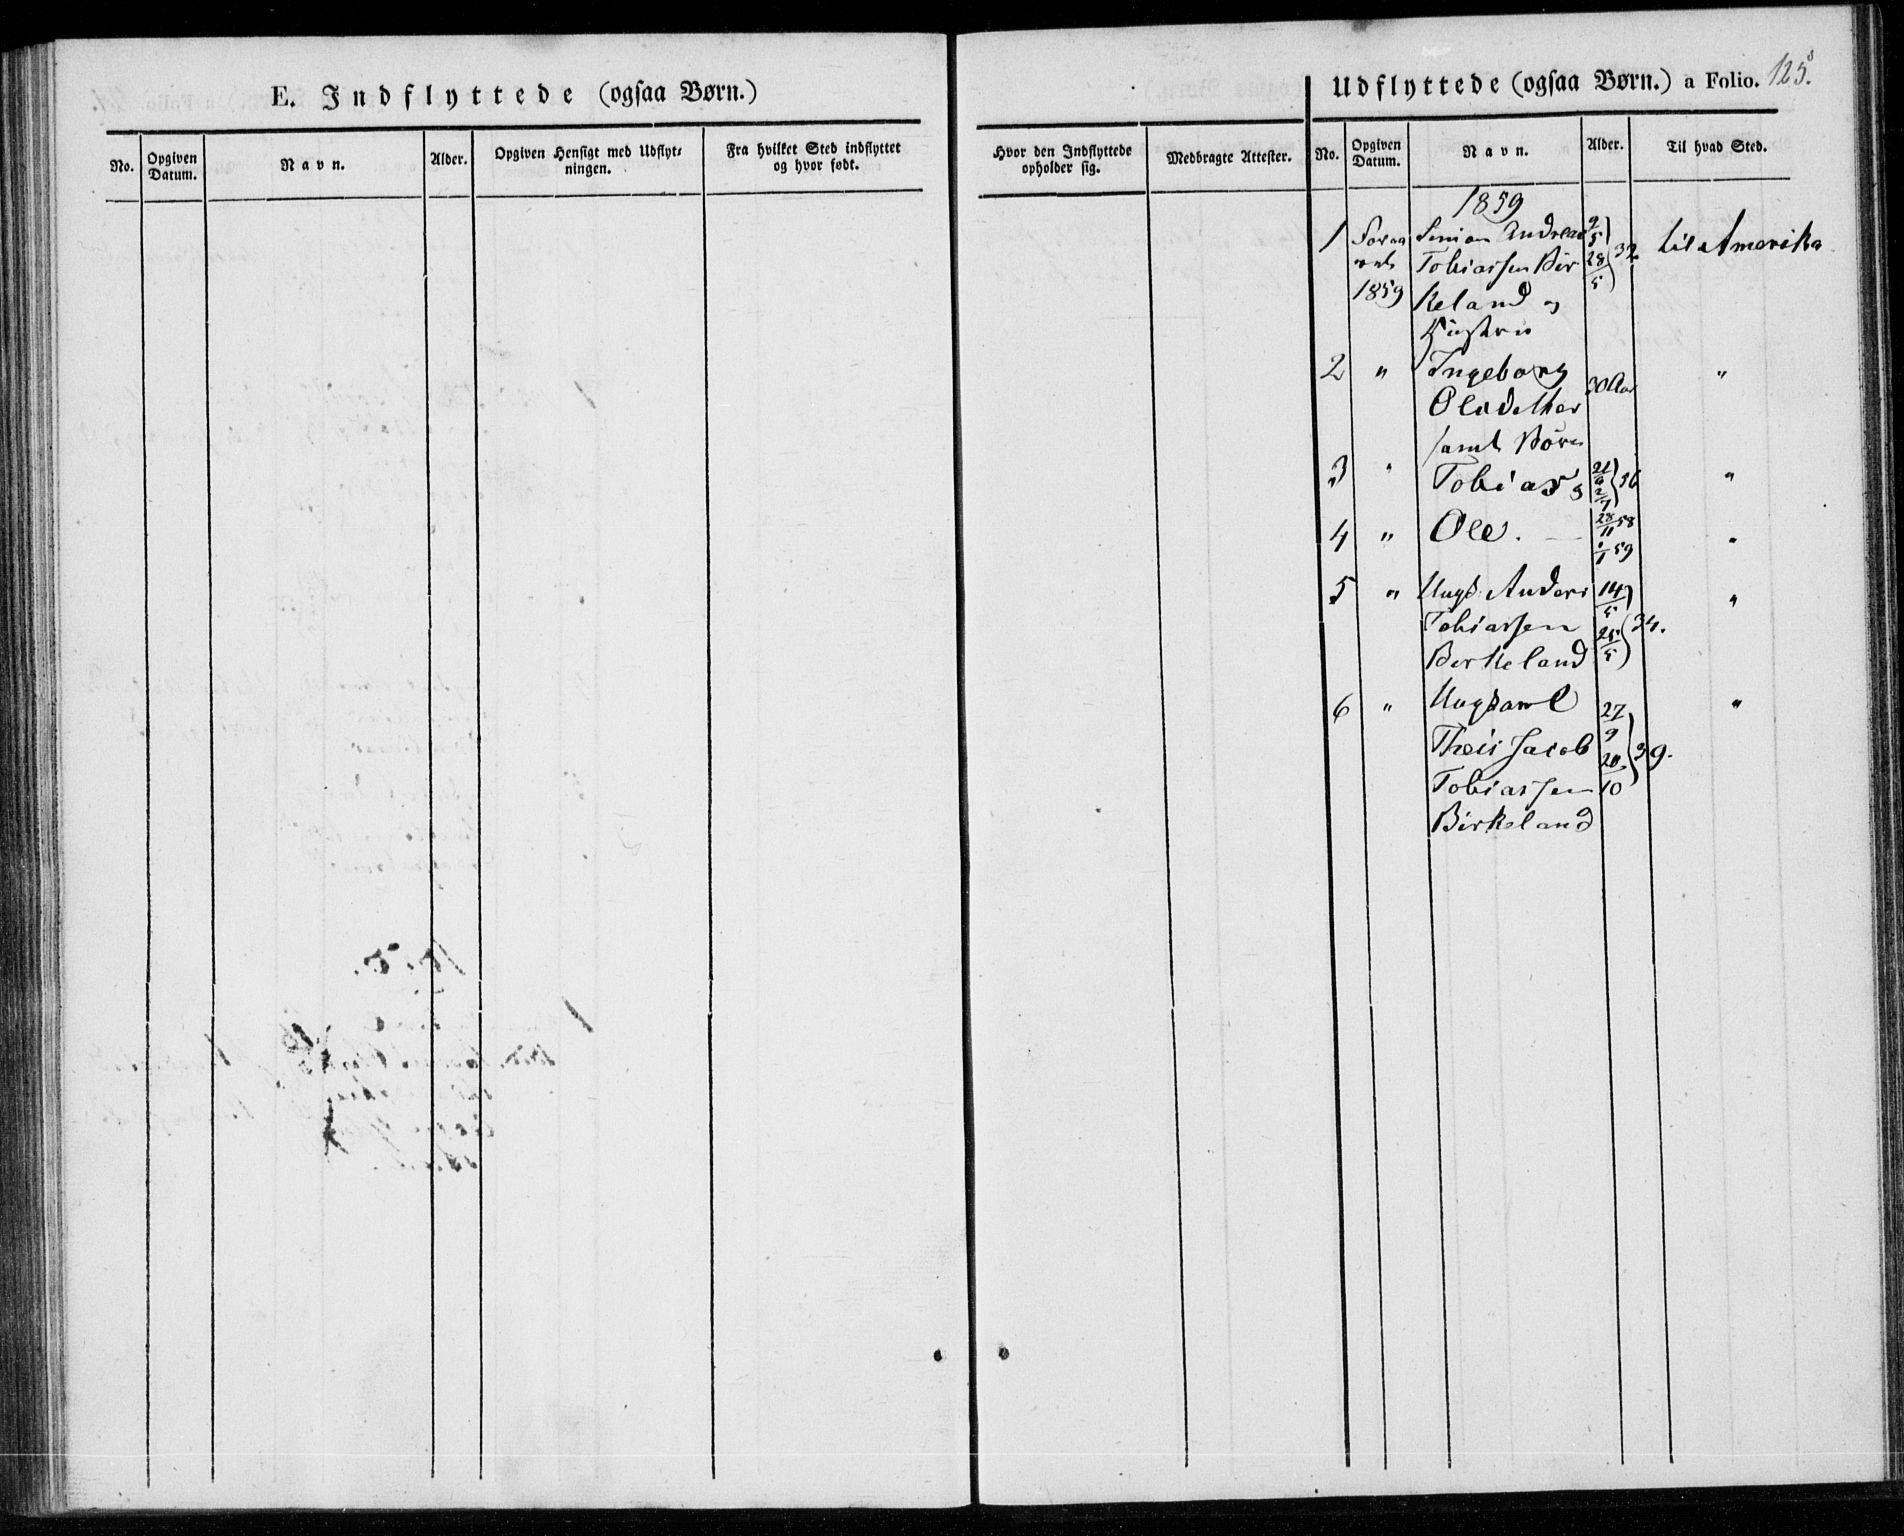 E. Indflyttede (ogsaa Børn.)
No.
Opgiven Datum.
Navn.
Alder.
Opgiven Hensigt med Udflyt-
ningen.
Fra hvilket Sted indflyttet
og hvor født.
Hvor den Indflyttede
opholder sig.
Medbragte Attester.
Udflyttede (ogsaa Børn.) a Folio. 125.
No.
Opgiven Datum.
Navn.
Alder.
Til hvad Sted.
1859
1 Simon Andreas 9/5 til Amerika
Tobiassen Bir 28/5 32
1859 keland og
Hustru
2 " Ingeborg 30 Aar "
Olsdatter
samt Børn
3 " Tobias og "
4 " Ole. 28/11 58 "
59
5 " Ungk Anders 14/5 "
Tobiassen 25/5 34.
Birkeland
6 " Ungkarl 27/9 "
Theis Jacob 39.
Tobiassen 20/10
Birkeland